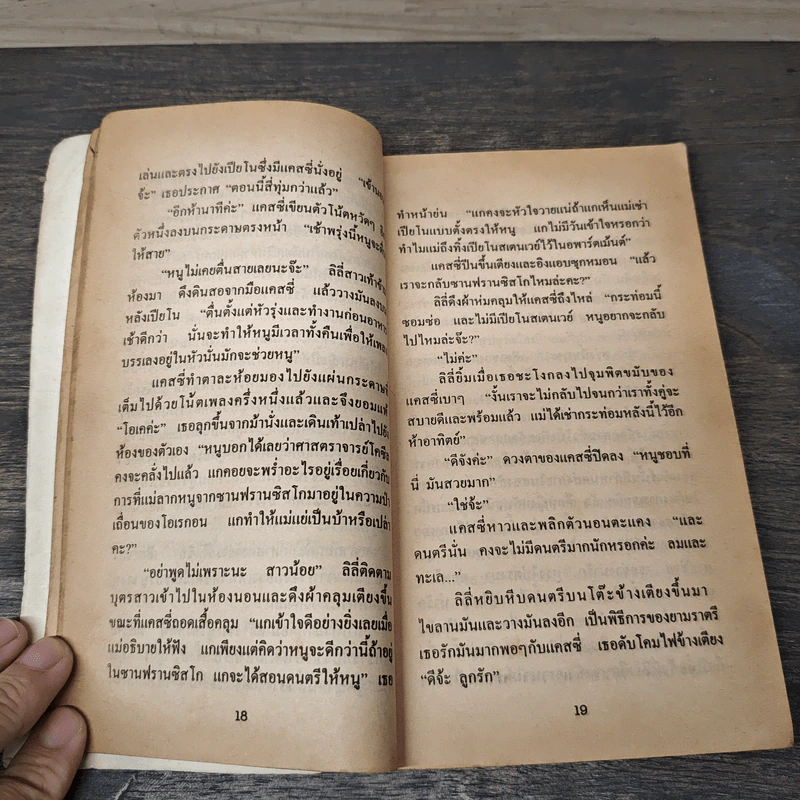 เล่นและตรงไปยังเปียโนซึ่งมีแคสซี่นั่งอยู่ “เข้านอน
จ้ะ” เธอประกาศ “ตอนนี้สี่ทุ่มกว่าแล้ว”
“อีกห้านาทีค่ะ” แคสซี่เขียนตัวโน้ตหวัดๆ
ตัวหนึ่งลงบนกระดาษตรงหน้า “เช้าพรุ่งนี้หนูจะ
ให้สาย”
“หนูไม่เคยตื่นสายเลยนะจ๊ะ” ลิลี่สาวเท้า
ห้องมา ดึงดินสอจากมือแคสซี่ แล้ววางมันลง
หลังเปียโน “ตื่นตั้งแต่หัวรุ่งและทำงานก่อนอาหาร
เช้าดีกว่า นั่นจะทำให้หนูมีเวลาทั้งคืนเพื่อให้เพลง
บรรเลงอยู่ในหัวนั่นมักจะช่วยหนู”
แคสซี่ทำตาละห้อยมองไปยังแผ่นกระดาษ
เต็มไปด้วยโน้ตเพลงครึ่งหนึ่งแล้วและจึงยอมแพ้
“โอเคค่ะ” เธอลุกขึ้นจากม้านั่งและเดินเท้าเปล่าไปยัง
ห้องของตัวเอง “หนูบอกได้เลยว่าศาสตราจารย์
คงจะคลั่งไปแล้ว แกคอยจะพร่ำอะไรอยู่เรื่อยเกี่ยวกับ
การที่แม่ลากหนูจากซานฟรานซิสโกมาอยู่ในความป่า
เถื่อนของโอเรกอน แกทำให้แม่แย่เป็นบ้าหรือเปล่า
คะ?”
“อย่าพูดไม่เพราะนะ สาวน้อย” ลิลี่ติดตาม
บุตรสาวเข้าไปในห้องนอนและดึงผ้าคลุมเตียงขึ้น
ขณะที่แคสซี่ถอดเสื้อคลุม “แกเข้าใจดีอย่างยิ่งเลยเมื่อ
แม่อธิบายให้ฟัง แกเพียงแต่คิดว่าหนูจะดีกว่านี้ถ้าอยู่
ในซานฟรานซิสโก แกจะได้สอนดนตรีให้หนู” เธอ
18
ทำหน้าย่น “แกคงจะหัวใจวายแน่ถ้าแกเห็นแม่เช่า
เปียโนแบบตั้งตรงให้หนู แกไม่มีวันเข้าใจหรอกว่า
ทำไมแม่ถึงทิ้งเปียโนสเตนเวย์ไว้ในอพาร์ตเม้นต์”
แคสซี่ปีนขึ้นเตียงและอิงแอบซุกหมอน “แล้ว
เราจะกลับซานฟรานซิสโกไหมล่ะคะ?”
ลิลี่ดึงผ้าห่มคลุมให้แคสซี่ถึงไหล่ “กระท่อมนี้
ซอมซ่อ และไม่มีเปียโนสเตนเวย์ หนูอยากจะกลับ
ไปไหมล่ะจ๊ะ?”
“ไม่ค่ะ”
ลิลี่ยิ้มเมื่อเธอชะโงกลงไปจุมพิตขมับของ
แคสซี่เบาๆ “งั้นเราจะไม่กลับไปจนกว่าเราทั้งคู่จะ
สบายดีและพร้อมแล้ว แม่ได้เช่ากระท่อมหลังนี้ไว้อีก
ห้าอาทิตย์”
“ดีจังค่ะ” ดวงตาของแคสซี่ปิดลง “หนูชอบที่
นี่ มันสวยมาก”
“ใช่จ้ะ”
แคสซี่หาวและพลิกตัวนอนตะแคง “และ
ดนตรีนั่น คงจะไม่มีดนตรีมากนักหรอกค่ะ ลมและ
ทะเล...”
ลิลี่หยิบหีบดนตรีบนโต๊ะข้างเตียงขึ้นมา
ไขลานมันและวางมันลงอีก เป็นพิธีการของยามราตรี
เธอรักมันมากพอๆกับแคสซี่ เธอดับโคมไฟข้างเตียง
“ดีจ้ะ ลูกรัก”
19